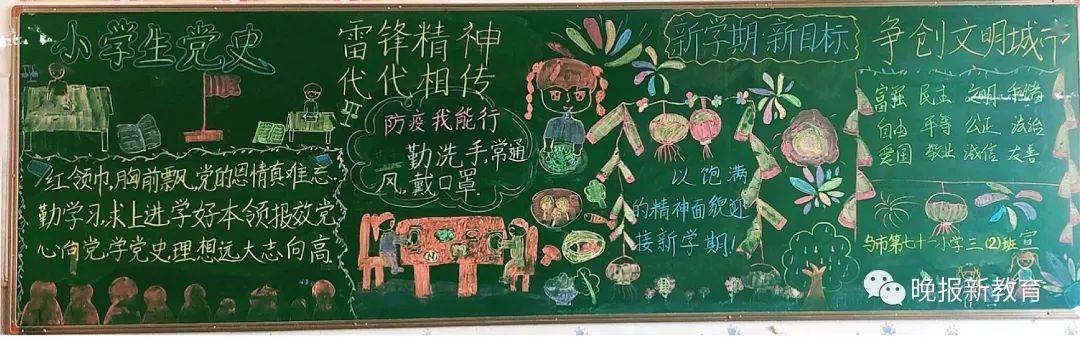 小学生党史
红领巾,胸前飘,党的恩情真难忘.
勤学习,求上进,学好本领报效党
心向党,学党史理想远大志向高
雷锋精神
代代相传
防疫我能行
勤洗手,常通
风,戴口罩
新学期·新目标
以饱满
的精神面貌迎
接新学期!
争创文明城市
富强 民主 文明 和谐
自由 平等 公正 法治
爱国 敬业 诚信 友善
乌市第七十一小学三(2)班 宣
晚报新教育